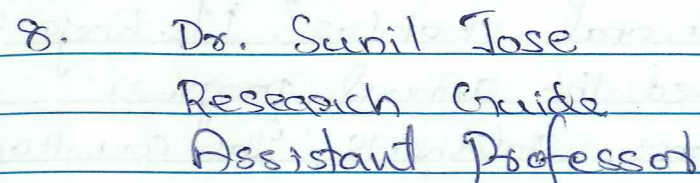 8. Dr. Sunil Jose
Research Guide
Assistant Professor